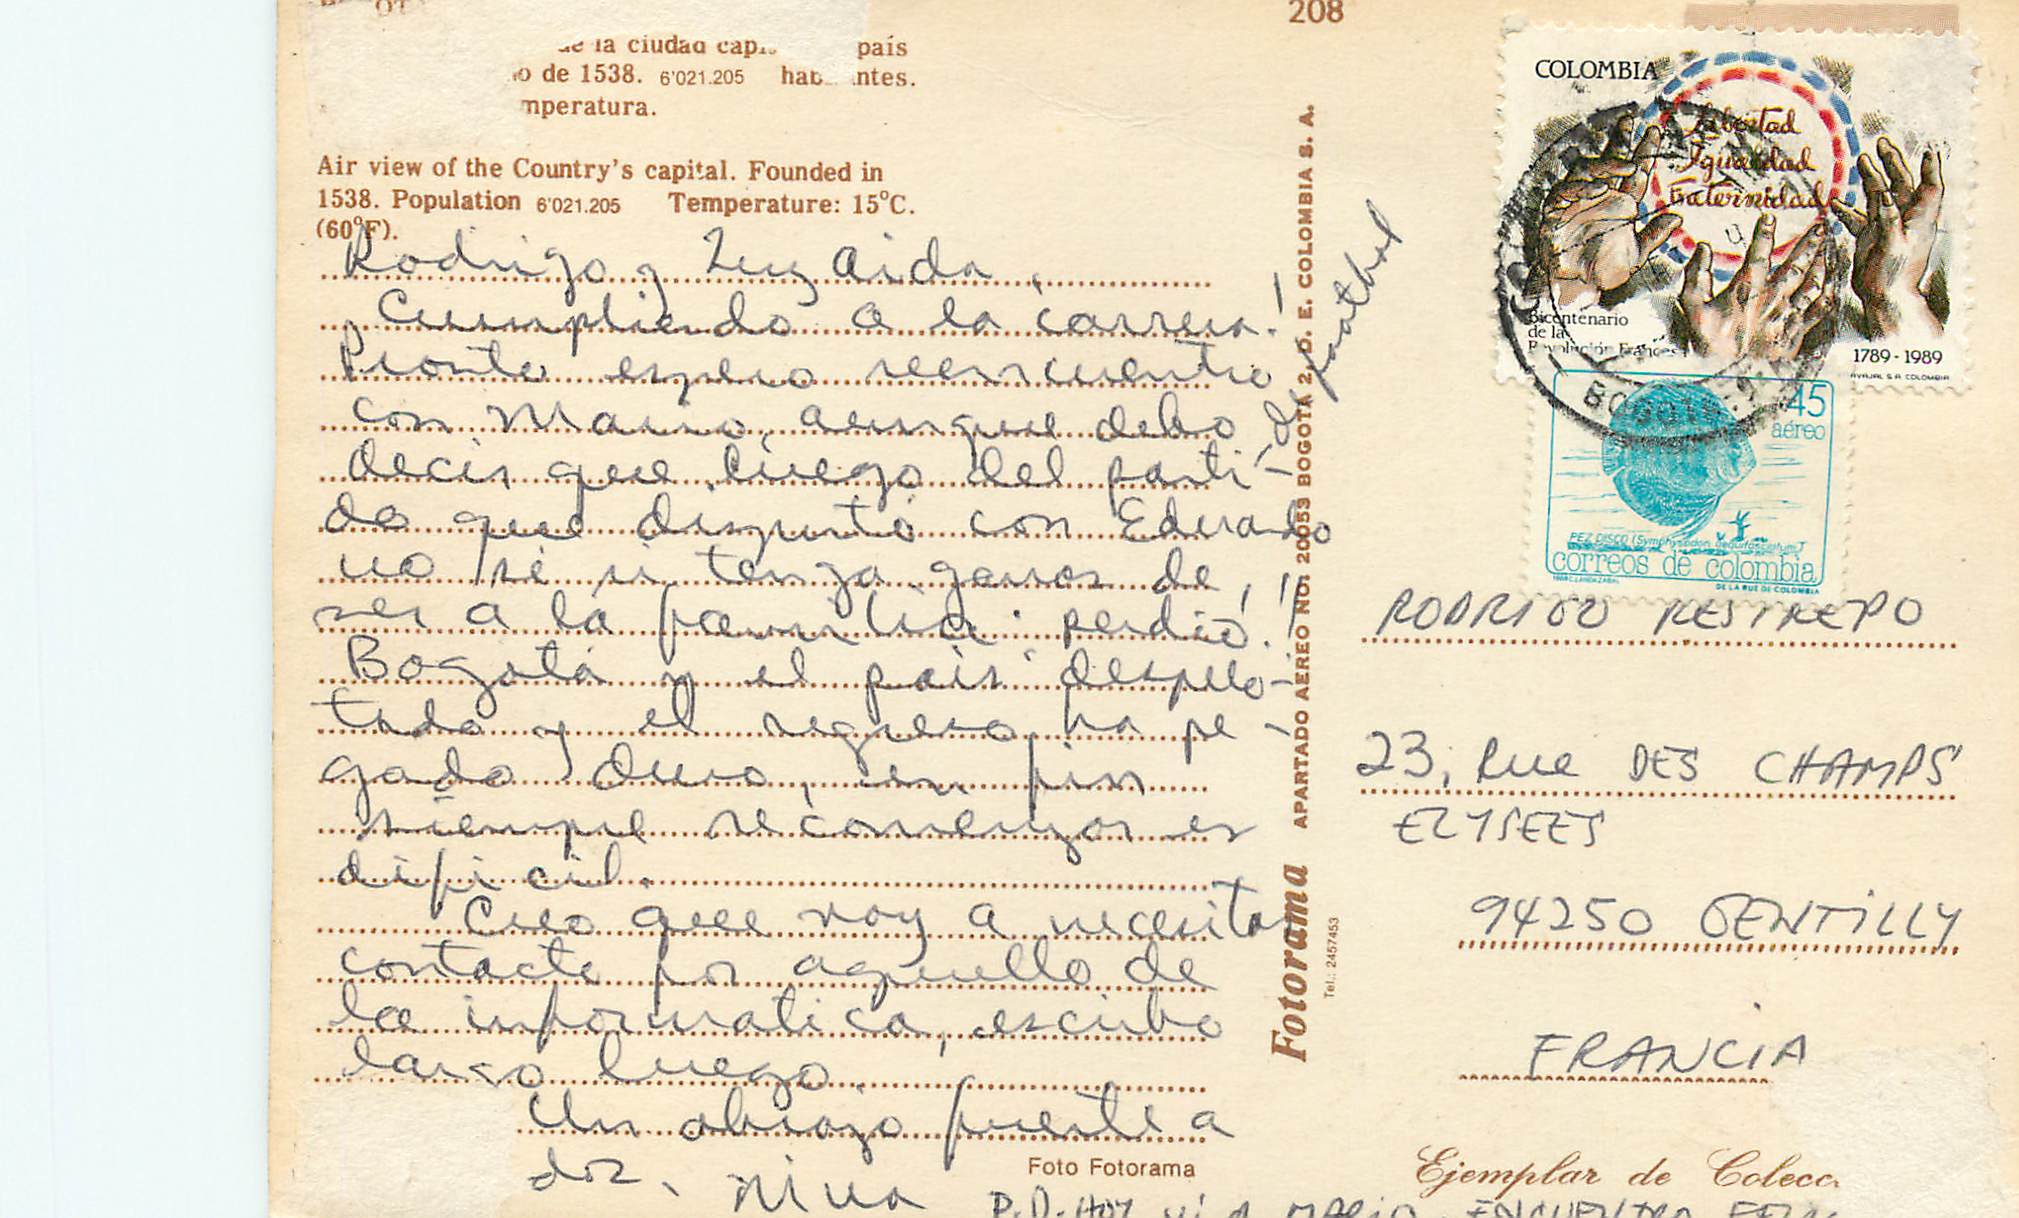 208
de la ciudad capi país
o de 1538. 6'021.205 hab ntes.
mperatura.
Air view of the Country's capital. Founded in
1538. Population 6'021.205 Temperature: 15°C.
(60°F).
Rodrigo y Luz Aida,
Cumpliendo a la carrera!
Pronto espero reencuentro
con Mario, aunque debo
decir que luego del parti-
do que disputó con Eduardo
de football
no sé si tenga ganas de
ver a la familia: perdió!!
Bogotá y el país despelo-
tado y el regreso ha pe-
gado duro, en fin
siempre recomenzar es
difícil.
Creo que voy a necesitar
contacto por aquello de
la informatica, escribo
largo luego.
Un abrazo fuerte a
dos. Nina
P.D. HOY VI A MARIO. ENCUENTRO
Foto Fotorama
Fotorama APARTADO AEREO NO. 20053 BOGOTA 2, D. E. COLOMBIA S. A.
Tel.: 2457453
COLOMBIA
Libertad
Igualdad
Fraternidad
Bicentenario
de la
Revolución Frances
1789-1989
AVAJAL S.A. COLOMBIA
BOGOTA
45
aéreo
PEZ DISCO (Symphysodon aequifasciatum)
correos de colombia
DE LA RUE DE COLOMBIA
RODRIGO RESTREPO
23, Rue DES CHAMPS
ELYSEES
94250 GENTILLY
FRANCIA
Ejemplar de Colecc